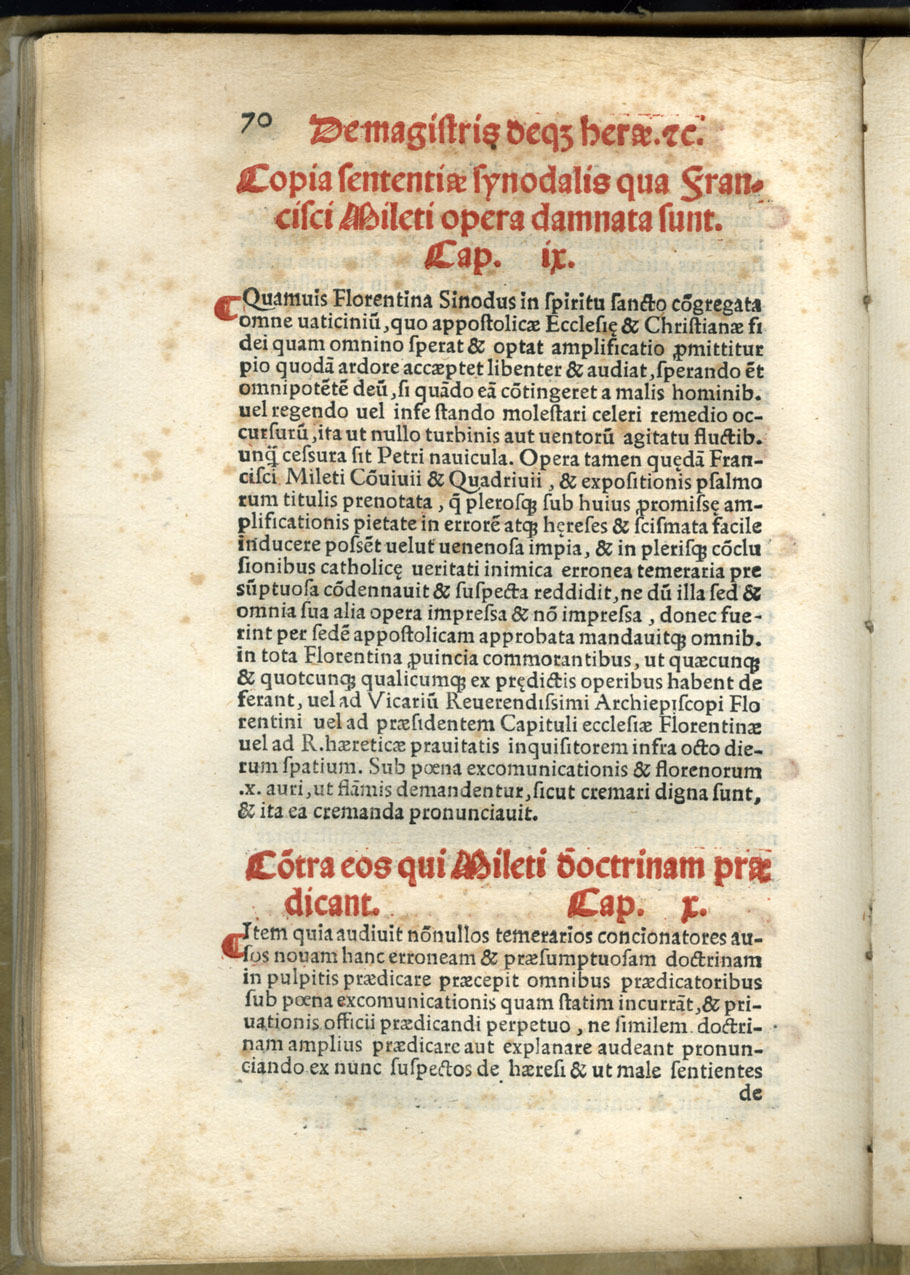 70 De magiſtris deqꝫ heræ.⁊c.
Copia ſententiæ ſynodalis qua Fran⸗
ciſci Mileti opera damnata ſunt.
Cap. ix.
¶Quamuis Florentina Sinodus in ſpiritu ſancto cōgregata
omne uaticiniū,quo appoſtolicæ Eccleſię & Chriſtianæ fi
dei quam omnino ſperat & optat amplificatio ꝓmittitur
pio quodā ardore accæptet libenter & audiat,ſperando ēt
omnipotētē deū,ſi quādo eā cōtingeret a malis hominib.
uel regendo uel infe ſtando moleſtari celeri remedio oc-
curſurū,ita ut nullo turbinis aut uentorū agitatu fluctib.
unq̃ ceſſura ſit Petri nauicula. Opera tamen quędā Fran-
ciſci Mileti Cōuiuii & Quadriuii , & expoſitionis pſalmo
rum titulis prenotata , q̃ pleroſqꝫ ſub huius ꝓmiſſę am-
plificationis pietate in errorē atqꝫ hęreſes & ſciſmata facile
inducere poſſēt uelut uenenoſa impia, & in pleriſqꝫ cōclu
ſionibus catholicę ueritati inimica erronea temeraria pre
sūptuoſa cōdennauit & ſuſpecta reddidit,ne dū illa ſed &
omnia ſua alia opera impreſſa & nō impreſſa , donec fue-
rint per ſedē appoſtolicam approbata mandauitqꝫ omnib.
in tota Florentina ꝓuincia commorantibus, ut quæcunqꝫ
& quotcunqꝫ qualicumqꝫ ex prędictis operibus habent de
ferant, uel ad Vicariū Reuerendiſſimi Archiepiſcopi Flo
rentini uel ad præſidentem Capituli eccleſiæ Florentinæ
uel ad R.hæreticæ prauitatis inquiſitorem infra octo die-
rum ſpatium. Sub pœna excomunicationis & florenorum
.x. auri,ut flāmis demandentur,ſicut cremari digna ſunt,
& ita ea cremanda pronunciauit.
Cōtra eos qui Mileti doctrinam præ
dicant. Cap. x.
¶Item quia audiuit nōnullos temerarios concionatores au-
ſos nouam hanc erroneam & præſumptuoſam doctrinam
in pulpitis prædicare præcepit omnibus prædicatoribus
ſub pœna excomunicationis quam ſtatim incurrāt,& pri-
uationis officii prædicandi perpetuo , ne ſimilem doctri-
nam amplius prædicare aut explanare audeant pronun-
ciando ex nunc ſuſpectos de hæreſi & ut male ſentientes
de